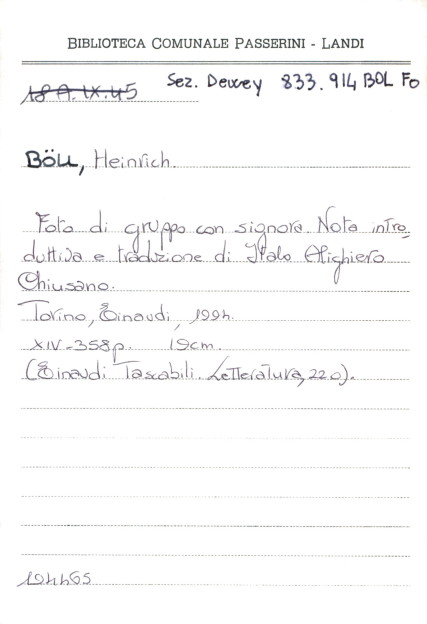 BIBLIOTECA COMUNALE PASSERINI - LANDI
18 A.IX.45 Sez. Dewey 833.914 BOL Fo
BÖLL, Heinrich.
Foto di gruppo con signora. Nota intro_
duttiva e traduzione di Italo Alighiero
Chiusano.
Torino, Einaudi, 1994.
XIV-358p. 19cm.
(Einaudi Tascabili. Letteratura, 220).
194465